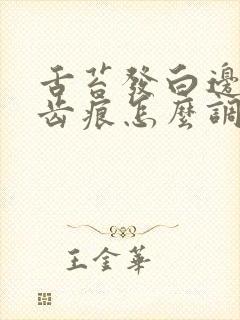 舌苔發白邊
齒痕怎麼調
王金華